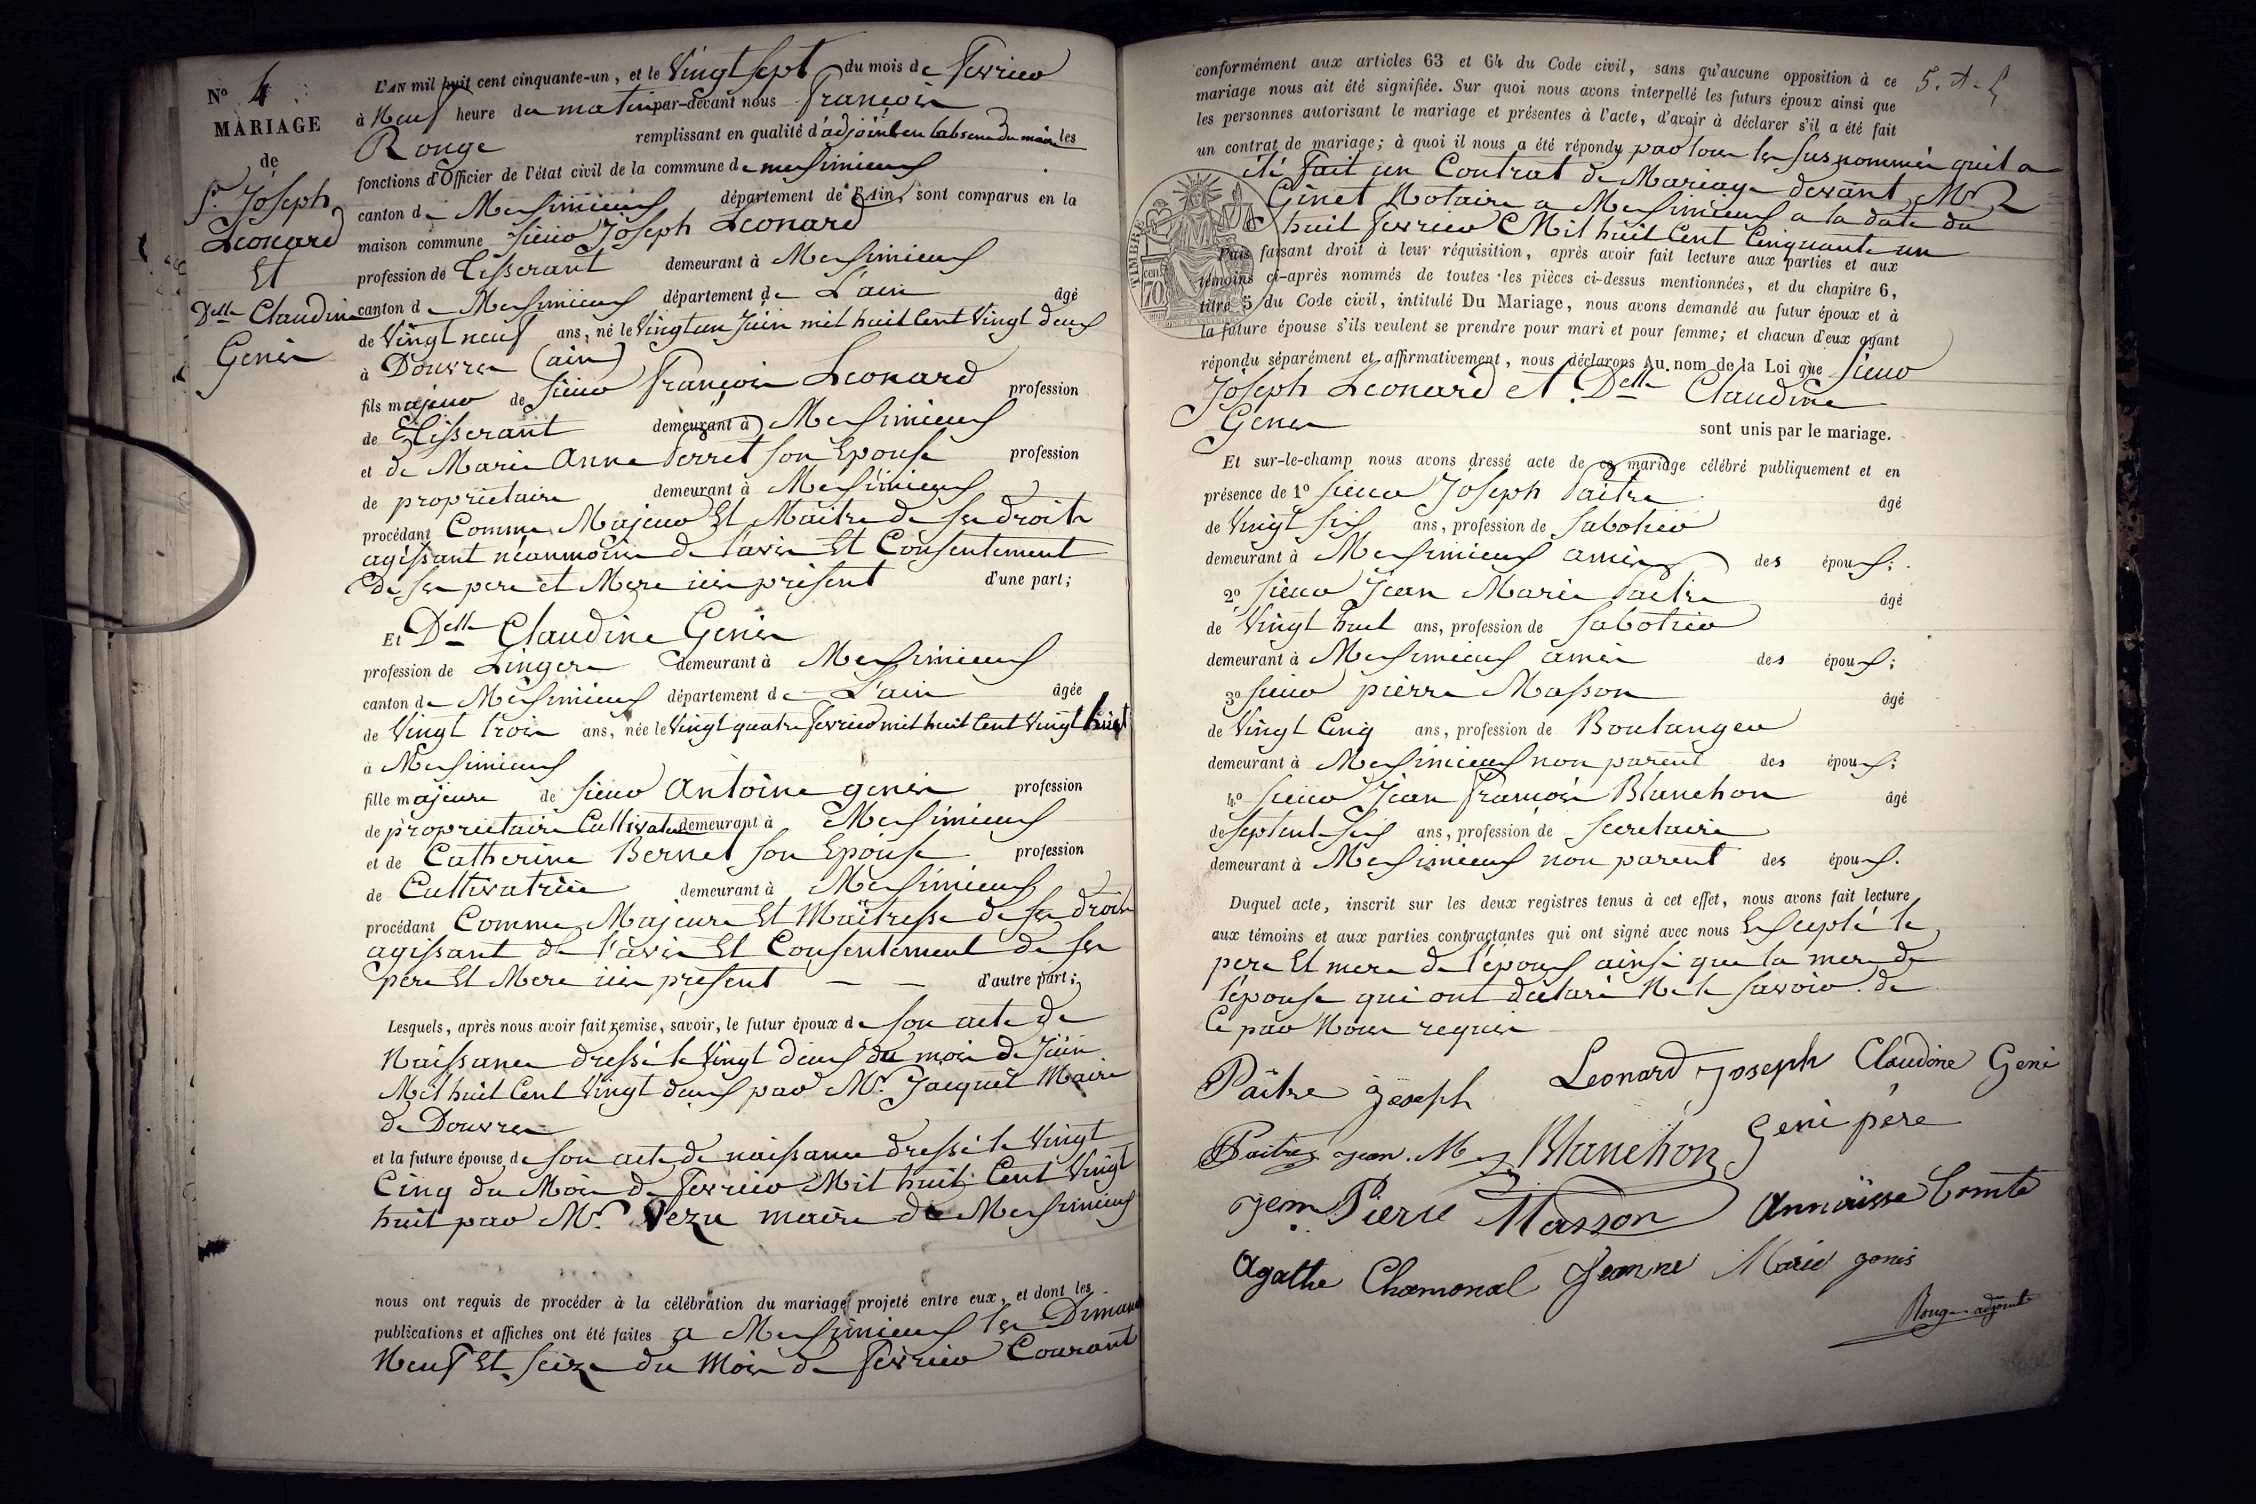 N° 4
MARIAGE
de
Sr. Joseph
Leonard
Et
Delle Claudine
Genis
L'AN mil huit cent cinquante-un, et le Vingt Sept du mois de fevrier
à Neuf heure du matin par-devant nous françois
Rouge remplissant en qualité d'adjoint en labsence du maire les
fonctions d'Officier de l'état civil de la commune de meximieux
canton de Meximieux département de l'Ain, sont comparus en la
maison commune Sieur Joseph Leonard
profession de Tisserant demeurant à Meximieux
canton de Meximieux département de L'ain âgé
de Vingt neuf ans, né le Vingt un Juin mil huit Cent Vingt deux
à Douvres (ain)
fils majeur de Sieur françois Leonard profession
de Tisserant demeurant à Meximieux
et de Marie Anne Perret son Epouse profession
de proprietaire demeurant à Meximieux
procédant Comme Majeur Et Maitre de ses droits
agissant néanmoins de l'avis Et Consentement
de ses pere et Mere ici présent d'une part;
Et Delle Claudine Genis
profession de Lingere demeurant à Meximieux
canton de Meximieux département de L'ain âgée
de Vingt trois ans, née le Vingt quatre fevrier mil huit Cent Vingt huit
à Meximieux
fille majeure de Sieur Antoine genis profession
de proprietaire Cultivateur demeurant à Meximieux
et de Catherine Bernet son Epouse profession
de Cultivatrice demeurant à Meximieux
procédant Comme Majeure Et Maitresse de ses droits
agissant de l'avis Et Consentement de ses
pere Et Mere ici présent — — d'autre part;
Lesquels, après nous avoir fait remise, savoir, le futur époux de son acte de
Naissance dressé le Vingt deux du mois de Juin
Mil huit Cent Vingt deux par Mr. Jacquet Maire
de Douvres
et la future épouse de son acte de naissance dressé le Vingt
Cinq du Mois de fevrier Mil huit Cent Vingt
huit par Mr. Vezu maire de Meximieux
nous ont requis de procéder à la célébration du mariage projeté entre eux, et dont les
publications et affiches ont été faites a Meximieux les Dimanc
Neuf Et Seize du Mois de fevrier Courant
conformément aux articles 63 et 64 du Code civil, sans qu'aucune opposition à ce
mariage nous ait été signifiée. Sur quoi nous avons interpellé les futurs époux ainsi que
les personnes autorisant le mariage et présentes à l'acte, d'avoir à déclarer s'il a été fait
un contrat de mariage; à quoi il nous a été répondu par tous les susnommés quil a
été fait un Contrat de Mariage devant Mr
Ginet Notaire a Meximieux a la date du
huit fevrier Mil huit Cent Cinquante un
TIMBRE
cent
70
Puis faisant droit à leur réquisition, après avoir fait lecture aux parties et aux
témoins ci-après nommés de toutes les pièces ci-dessus mentionnées, et du chapitre 6,
titre 5 du Code civil, intitulé Du Mariage, nous avons demandé au futur époux et à
la future épouse s'ils veulent se prendre pour mari et pour femme; et chacun d'eux ayant
répondu séparément et affirmativement, nous déclarons Au nom de la Loi que Sieur
Joseph Leonard et Delle Claudine
Genis sont unis par le mariage.
Et sur-le-champ nous avons dressé acte de ce mariage célébré publiquement et en
présence de 1° Sieur Joseph Paitre âgé
de Vingt Six ans, profession de Sabotier
demeurant à Meximieux amis des époux;
2° Sieur Jean Marie Paitre âgé
de Vingt huit ans, profession de Sabotier
demeurant à Meximieux amis des époux;
3° Sieur pierre Masson âgé
de Vingt Cinq ans, profession de Boulanger
demeurant à Meximieux non parent des époux;
4° Sieur Jean françois Blanchon âgé
de Septente Six ans, profession de Secretaire
demeurant à Meximieux non parent des époux.
Duquel acte, inscrit sur les deux registres tenus à cet effet, nous avons fait lecture
aux témoins et aux parties contractantes qui ont signé avec nous Excepté le
pere Et mere de l'époux ainsi que la mere de
l'épouse qui ont déclaré Ne le savoir de
Ce par Nous requis
Paitre Joseph Leonard Joseph Claudine Geni
Paitre Jean. M Blanchon Geni père
Jem Pierre Masson Annaïsse Comte
Agathe Chamonal Jeanne Marie genis
Rouge adjoint